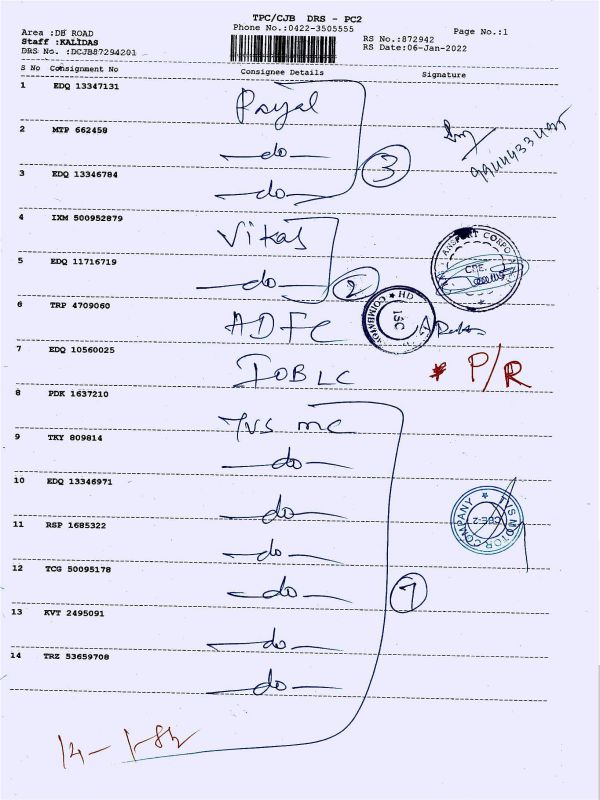 TPC/CJB DRS - PC2
Phone No.:0422-3505555
Page No.:1
Area :DB ROAD
Staff :KALIDAS
DRS No. :DCJB87294201
RS No.:872942
RS Date:06-Jan-2022
S No Consignment No Consignee Details Signature
1 EDQ 13347131 Payal
2 MTP 662458 —do—
3 EDQ 13346784 —do—
3
4 IXM 500952879 Vikas
5 EDQ 11716719 —do—
2
6 TRP 4709060 ADFC
7 EDQ 10560025 IOB LC * P/R
8 PDK 1637210 TVS mc
9 TKY 809814 —do—
10 EDQ 13346971 —do—
11 RSP 1685322 —do—
12 TCG 50095178 —do—
7
13 KVT 2495091 —do—
14 TRZ 53659708 —do—
TVS MOTOR COMPANY
CBE-2